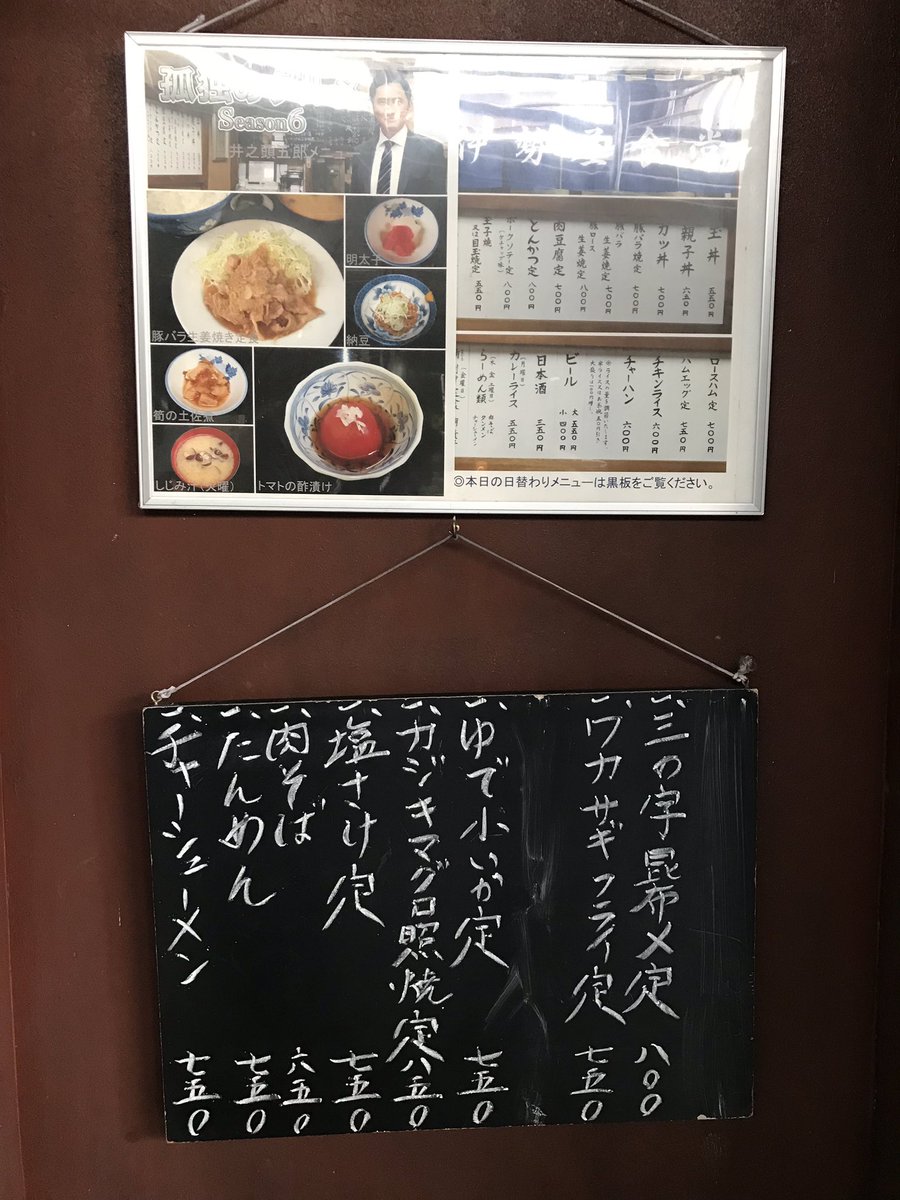 孤独の
Season6
井之頭五郎メニュー
豚バラ生姜焼き定食
明太子
納豆
筍の土佐煮
しじみ汁(火曜)
トマトの酢漬け
玉丼 五五〇円
親子丼 六五〇円
カツ丼 七〇〇円
豚バラ焼定 七〇〇円
豚バラ生姜焼定 七〇〇円
豚ロース生姜焼定 八〇〇円
肉豆腐定 七〇〇円
とんかつ定 八〇〇円
ポークソテー定 (ケチャップ味) 八〇〇円
玉子焼又は目玉焼定 五五〇円
ロースハム定 七〇〇円
ハムエッグ定 七五〇円
チキンライス 六〇〇円
チャーハン 六〇〇円
ビール 大 五五〇円 小 四〇〇円
日本酒 三五〇円
(月曜日)
カレーライス 五五〇円
らーめん類
◎本日の日替わりメニューは黒板をご覧ください。
一、三の字昆布〆定 八〇〇
一、ワカサギフライ定 七五〇
一、ゆで小いか定 七五〇
一、カジキマグロ照焼定 八五〇
一、塩さけ定 七五〇
一、肉そば 六五〇
一、たんめん 七五〇
一、チャーシューメン 七五〇